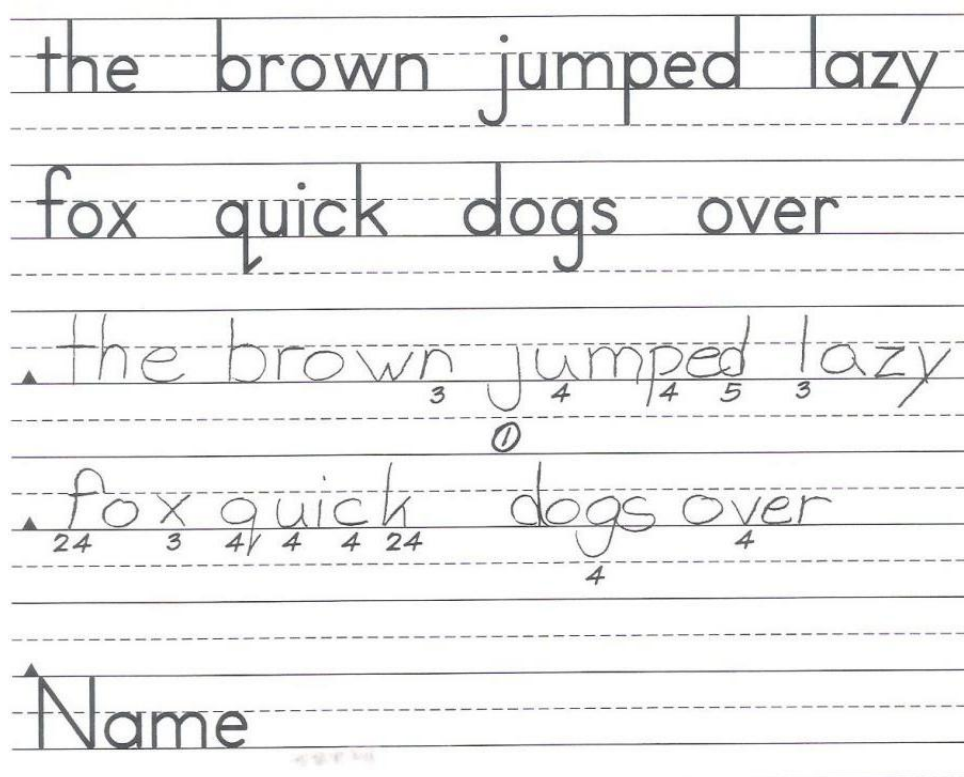 the brown jumped lazy
fox quick dogs over
the brown jumped lazy
3 4 4 5 3
1
fox quick dogs over
24 3 4 4 4 24 4
4
Name